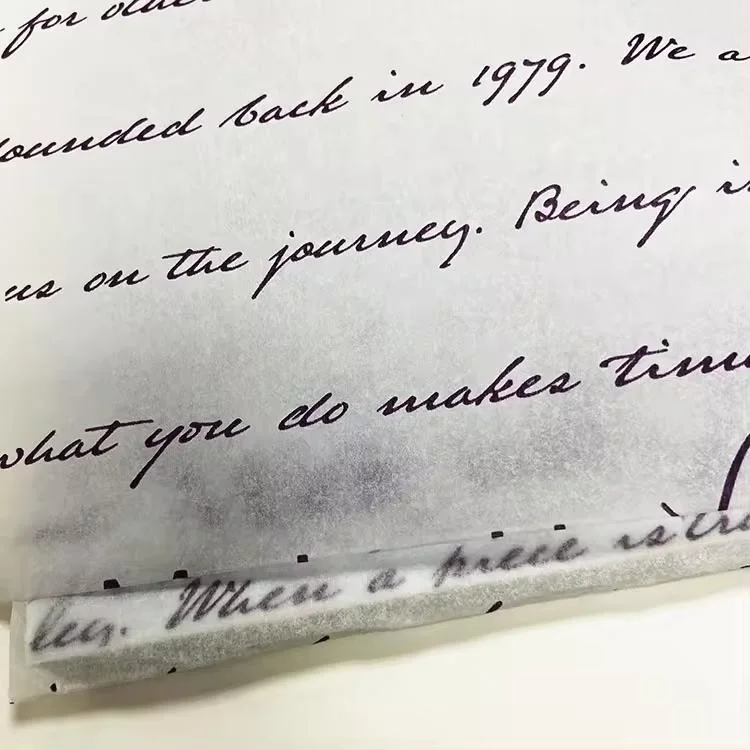 for
founded back in 1979. We a
us on the journey. Being i
what you do makes time
ley. When a piece is cr